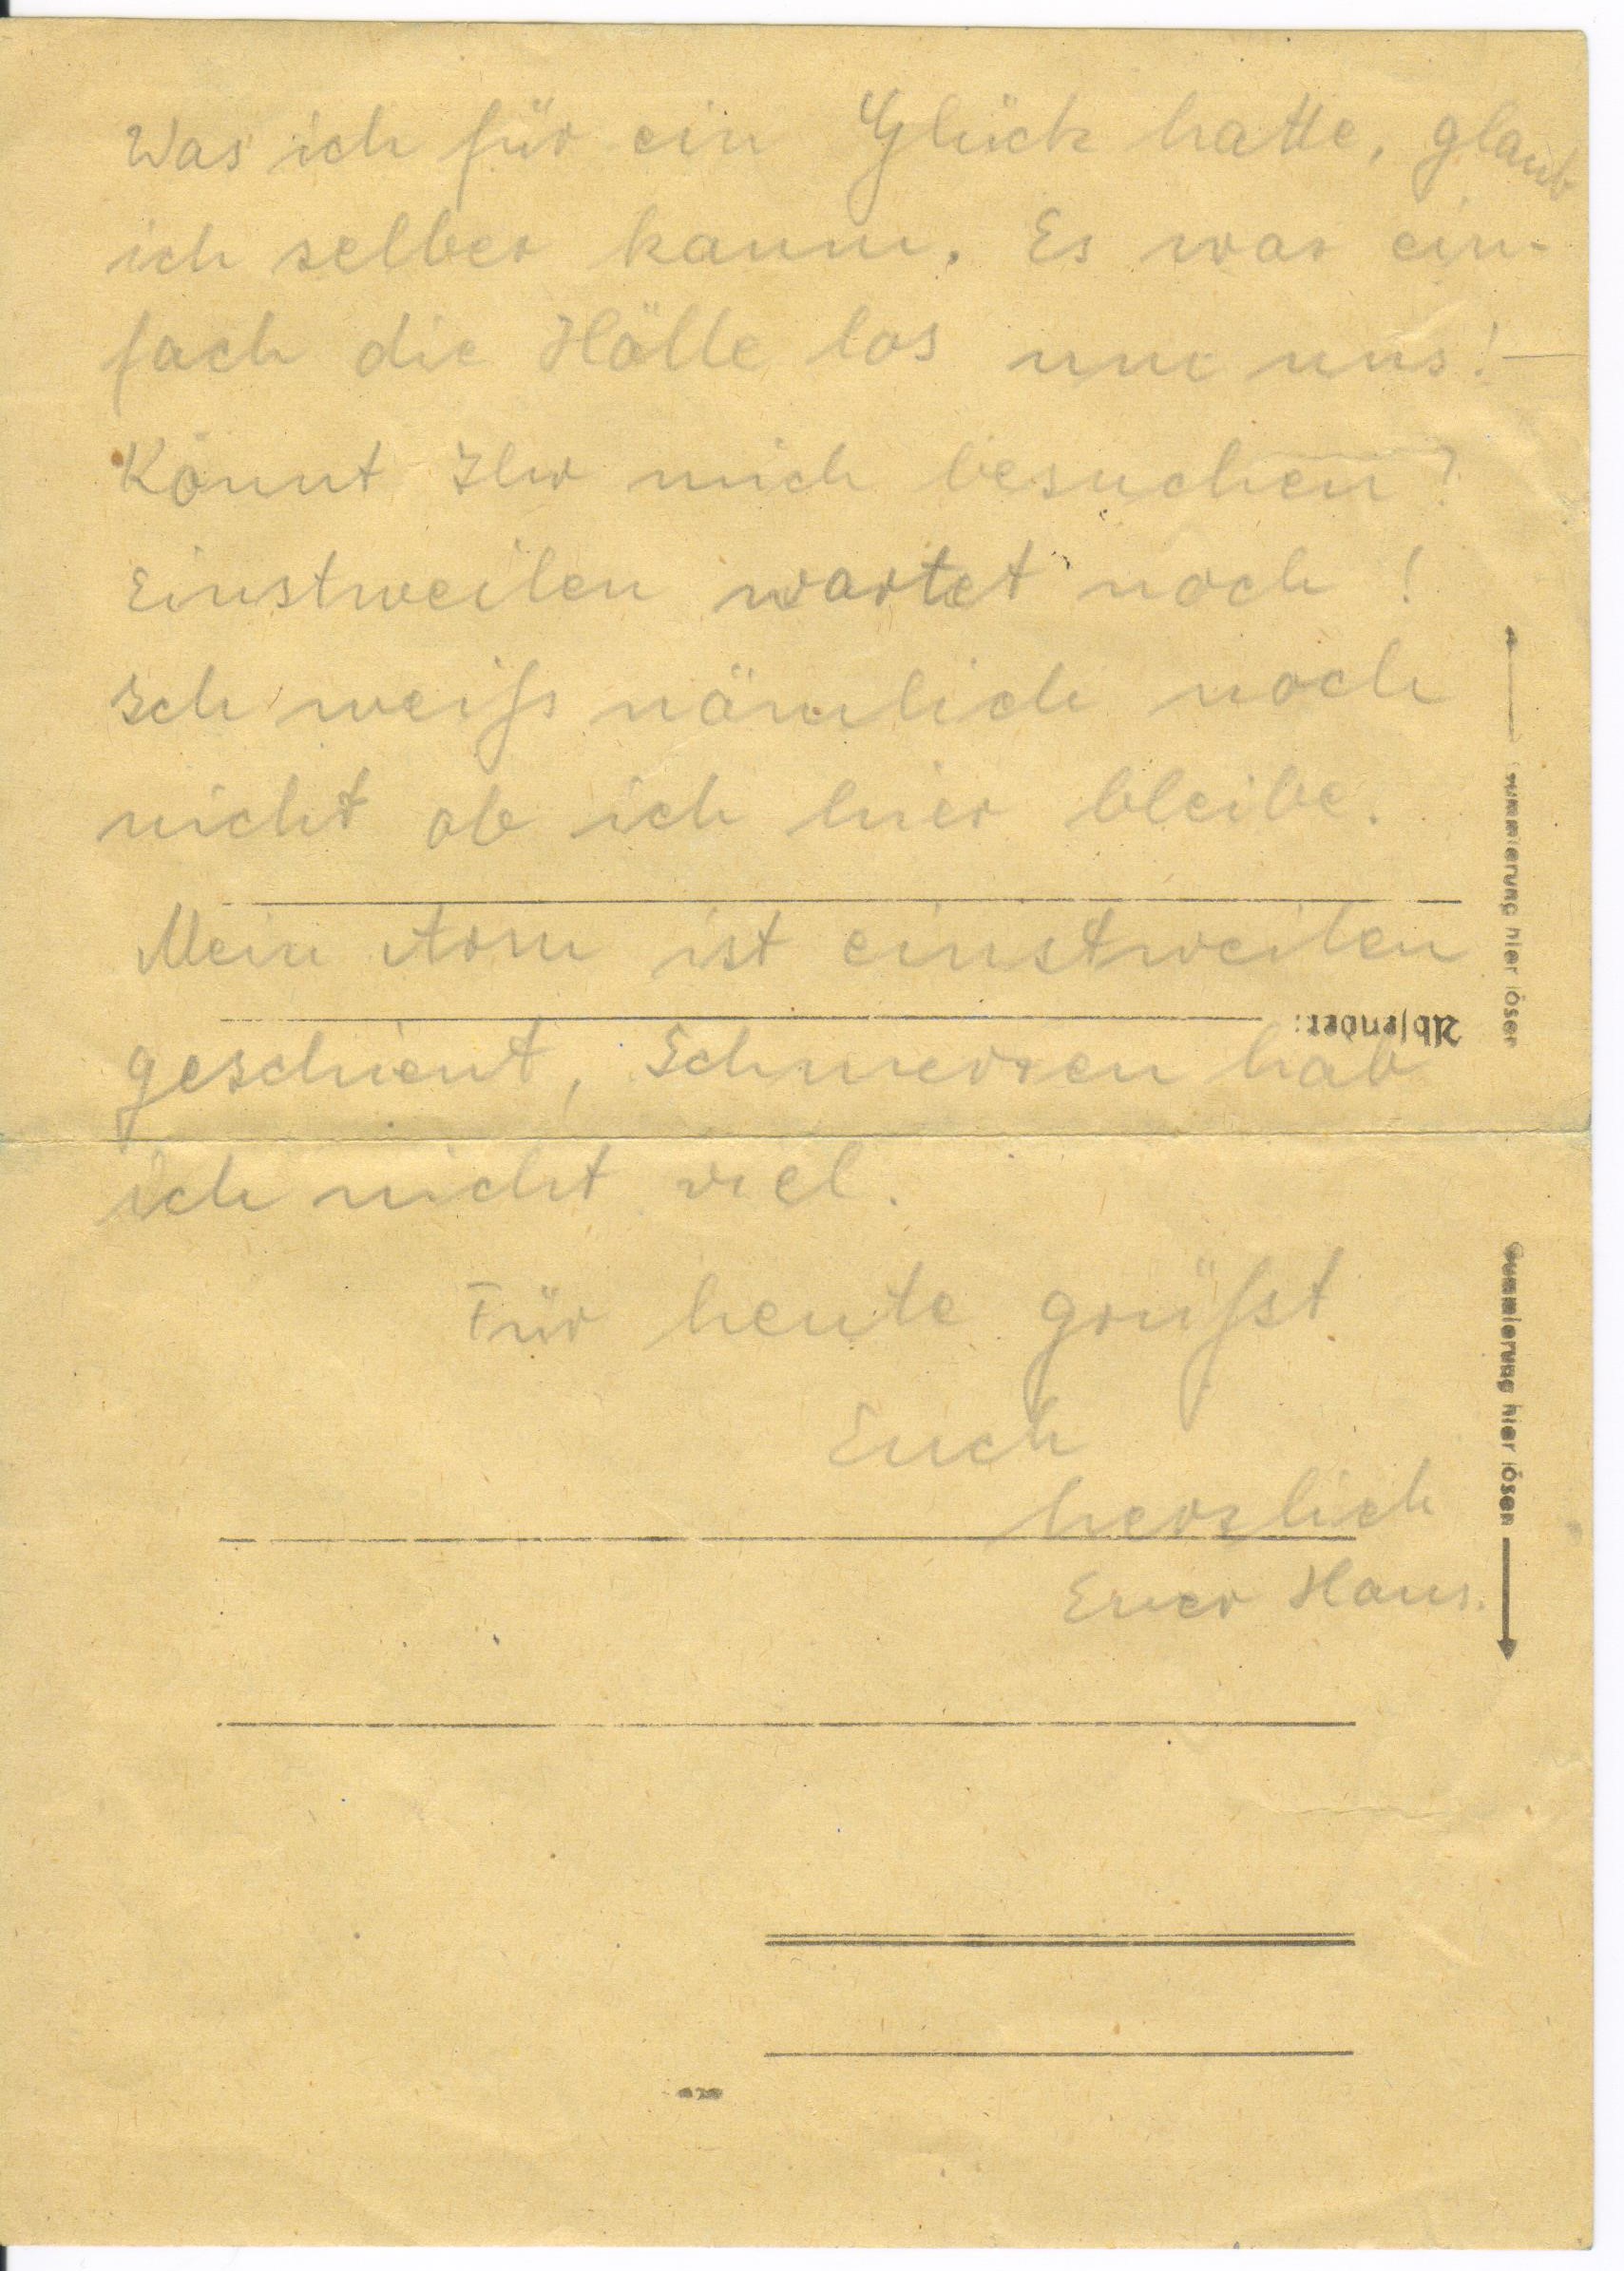 Was ich für ein Glück hatte, glaub
ich selber kaum. Es war ein-
fach die Hölle los um uns! —
Könnt Ihr mich besuchen?
Einstweilen wartet noch!
Ich weiss nämlich noch
nicht ob ich hier bleibe.
Mein Arm ist einstweilen
Absender:
geschient, Schmerzen hab
ich nicht viel.
Für heute grüsst
Euch
herzlich
Euer Hans.
ummierung hier lösen
Gummierung hier lösen